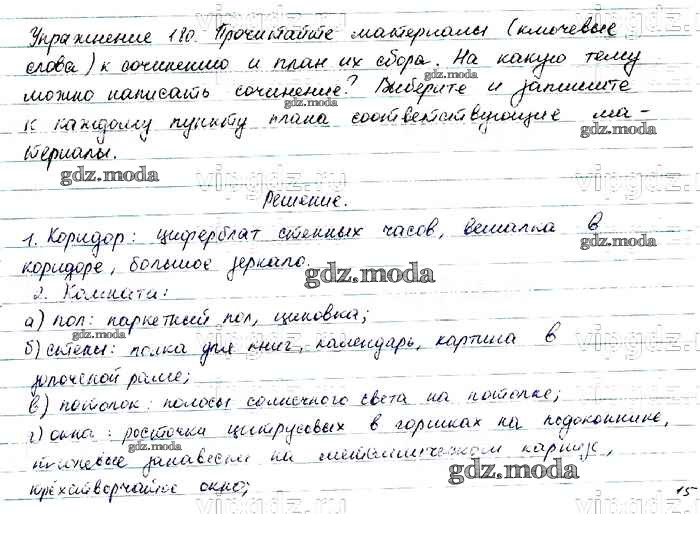 Упражнение 180. Прочитайте материалы (ключевые
слова) к сочинению и план их сбора. На какую тему
можно написать сочинение? Выберите и запишите
к каждому пункту плана соответствующие ма-
териалы.
Решение.
1. Коридор: циферблат стенных часов, вешалка в
коридоре, большое зеркало.
2. Комната:
а) пол: паркетный пол, циновка;
б) стены: полка для книг, календарь, картина в
золоченой раме;
в) потолок: полосы солнечного света на потолке;
г) окна: росточки цитрусовых в горшках на подоконнике,
тюлевые занавески на металлическом карнизе,
трёхстворчатое окно;
15
gdz.moda
gdz.moda
gdz.moda
gdz.moda
gdz.moda
gdz.moda
gdz.moda
gdz.moda
gdz.moda
vipgdz.ru
vipgdz.ru
vipgdz.ru
vipgdz.ru
vipgdz.ru
vipgdz.ru